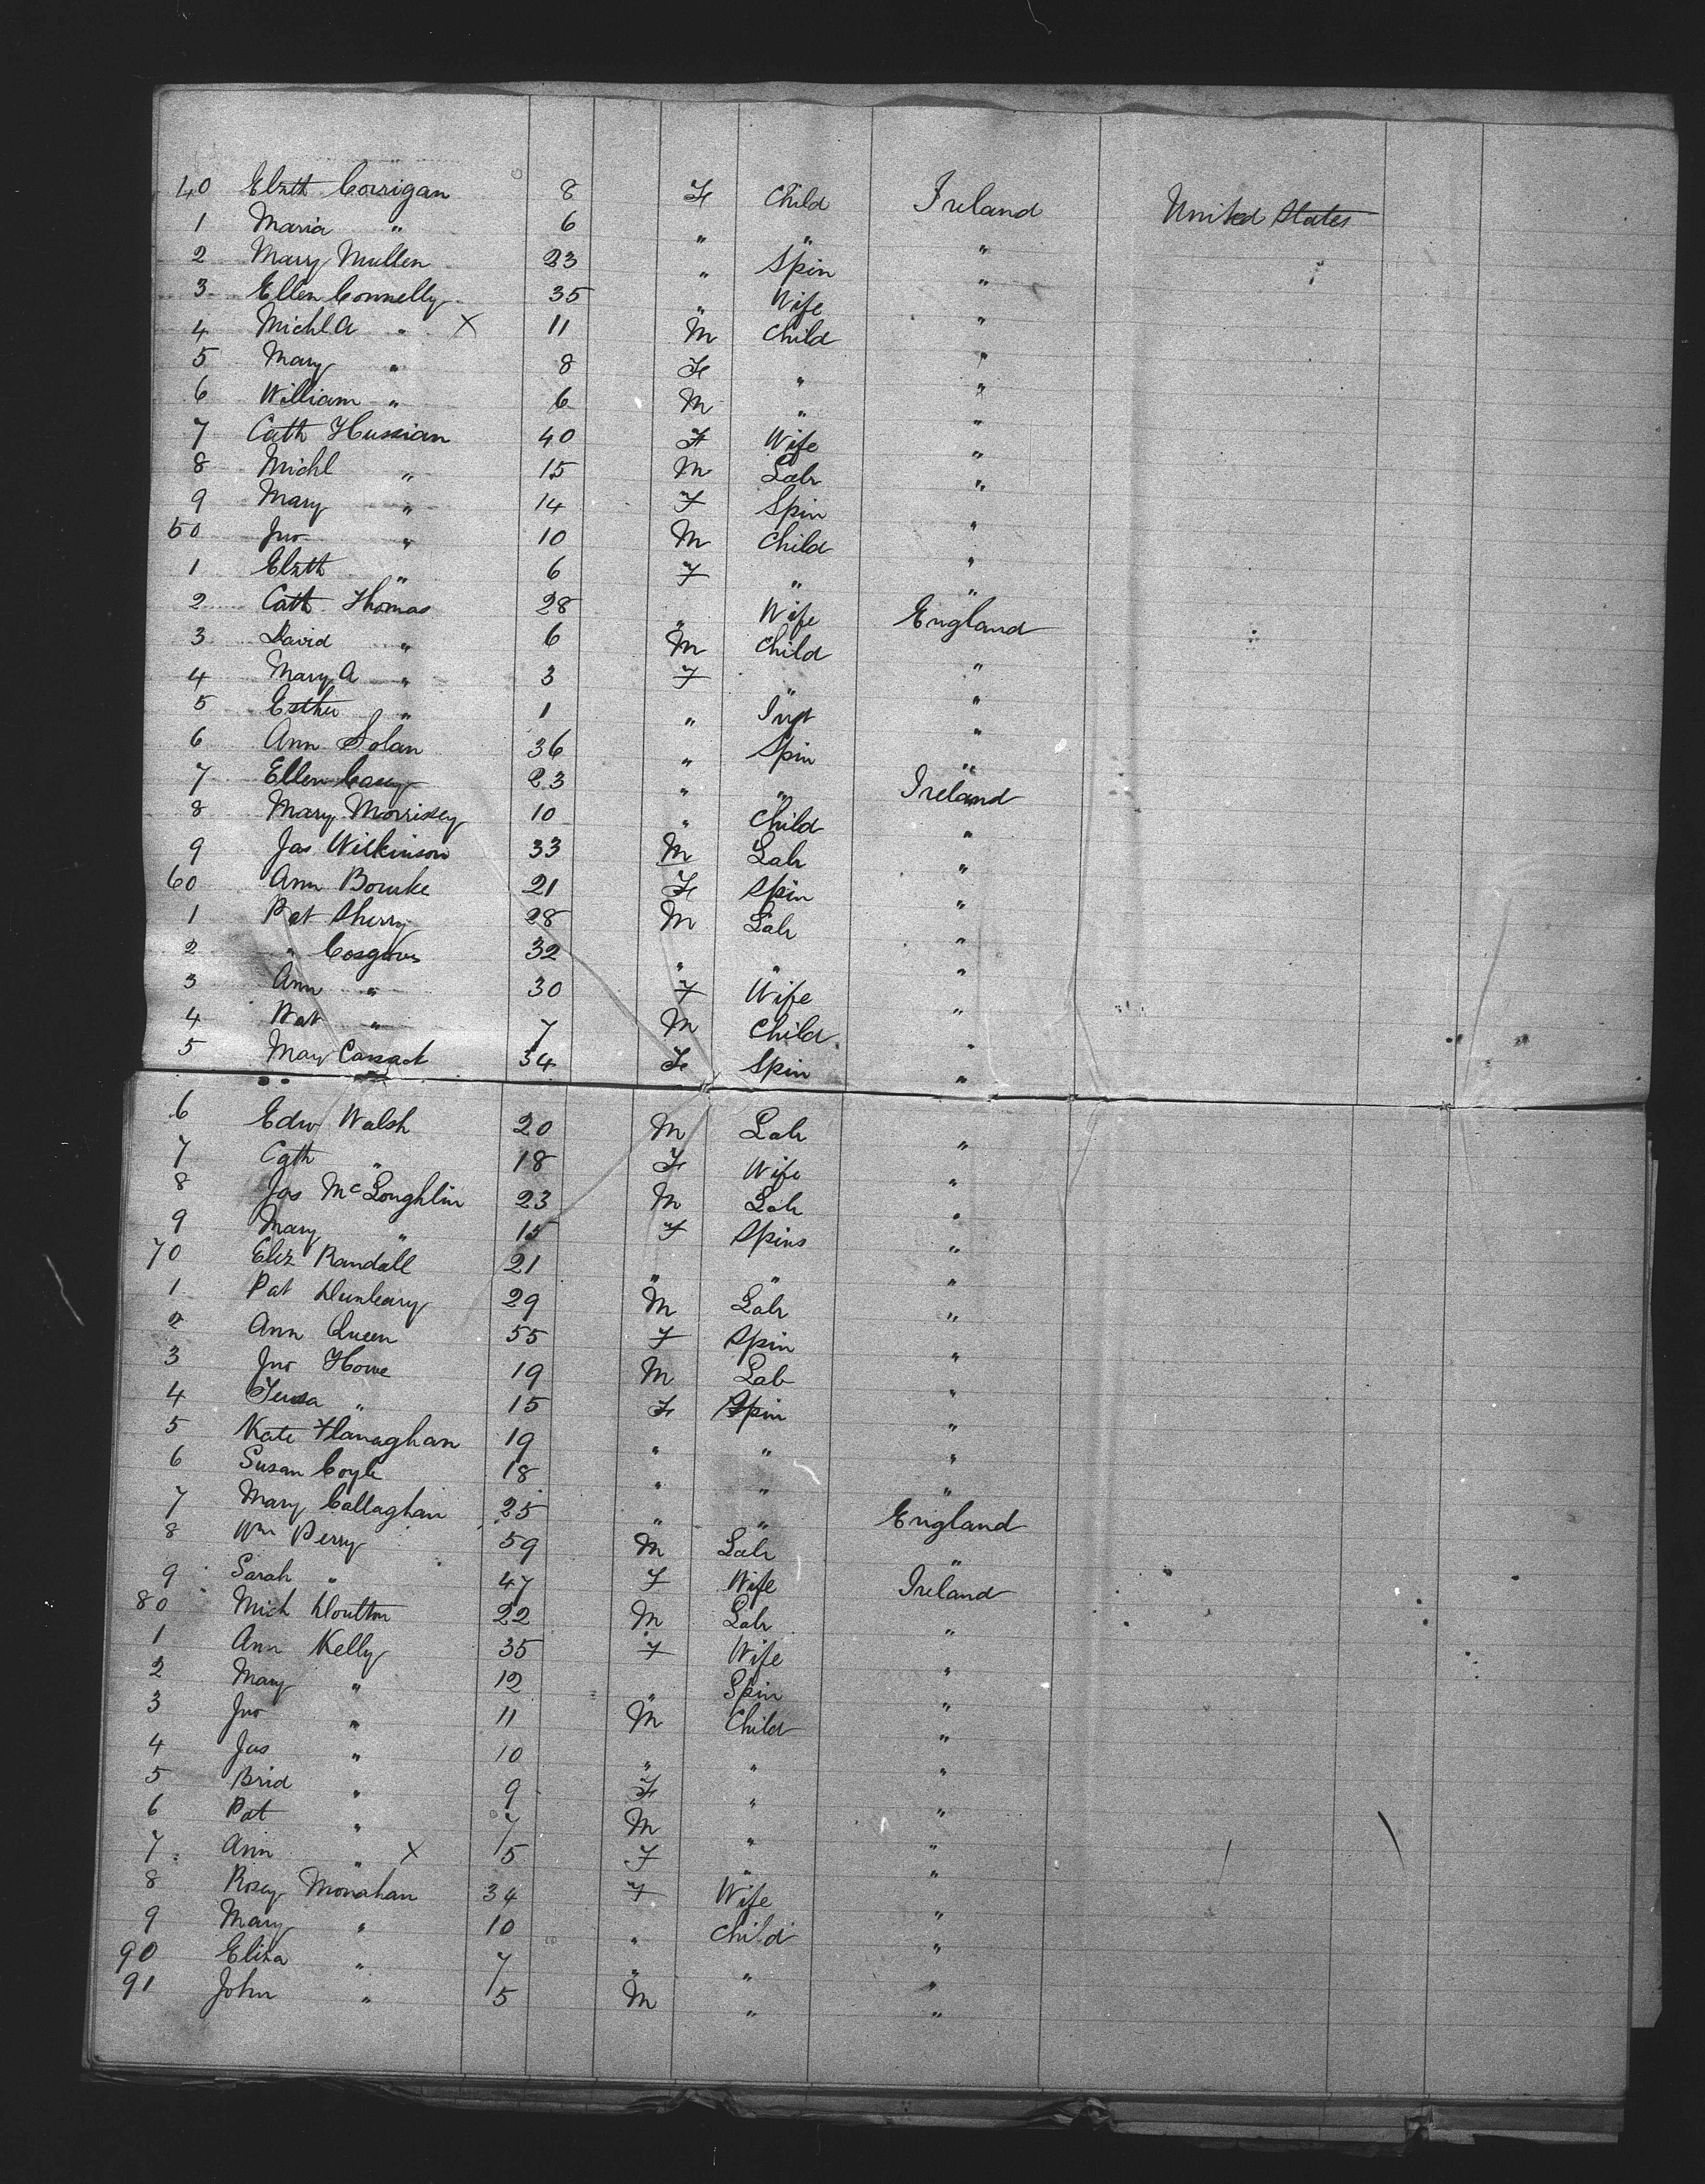 40 Elzth Corrigan 8 F Child Ireland United States
1 Maria " 6 " " "
2 Mary Mullen 23 " Spin "
3 Ellen Connelly 35 " Wife "
4 Michl A " X 11 M Child "
5 Mary " 8 F " "
6 William " 6 M " "
7 Cath Hussian 40 F Wife "
8 Michl " 15 M Labr "
9 Mary " 14 F Spin "
50 Jno " 10 M Child "
1 Elzth " 6 F " "
2 Cath Thomas 28 " Wife England
3 David " 6 M Child "
4 Mary A " 3 F " "
5 Esther " 1 " Inft "
6 Ann Solan 36 " Spin "
7 Ellen Casey 23 " " Ireland
8 Mary Morrisey 10 " Child "
9 Jas Wilkinson 33 M Labr "
60 Ann Bourke 21 F Spin "
1 Pat Sherry 28 M Labr "
2 " Cosgrove 32 " " "
3 Ann " 30 F Wife "
4 Wat " 7 M Child "
5 Mary 34 F Spin "
6 Edw Walsh 20 M Labr "
7 Cath " 18 F Wife "
8 Jas McLoughlin 23 M Labr "
9 Mary " 15 F Spins "
70 Eliz Randall 21 " " "
1 Pat Dunleary 29 M Labr "
2 Ann Queen 55 F Spin "
3 Jno Howe 19 M Lab "
4 Teresa " 15 F Spin "
5 Kate Flanaghan 19 " " "
6 Susan Coyle 18 " " "
7 Mary Callaghan 25 " " England
8 Wm Perry 59 M Labr "
9 Sarah " 47 F Wife Ireland
80 Mich Doulton 22 M Labr "
1 Ann Kelly 35 F Wife "
2 Mary " 12 " Spin "
3 Jno " 11 M Child "
4 Jas " 10 " " "
5 Brid " 9 F " "
6 Pat " 7 M " "
7 Ann " X 5 F " "
8 Rosey Monahan 34 F Wife "
9 Mary " 10 " Child "
90 Eliza " 7 " " "
91 John " 5 M " "